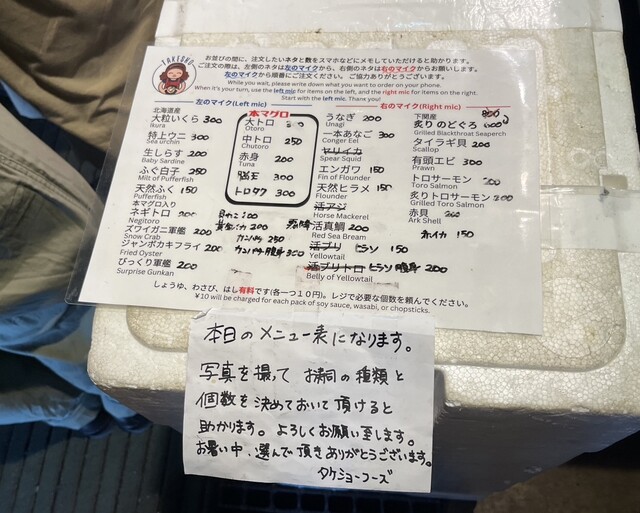 TAKESHO
お並びの間に、注文したいネタと数をスマホなどにメモしていただけると助かります。
ご注文の際は、左側のネタは左のマイクから、右側のネタは右のマイクからお願いします。
左のマイクから順番にご注文ください。ご協力ありがとうございます。
While you wait, please write down what you want to order on your phone.
When it's your turn, use the left mic for items on the left, and the right mic for items on the right.
Start with the left mic. Thank you!
左のマイク(Left mic)
北海道産
大粒いくら 300
Ikura
特上ウニ 300
Sea urchin
生しらす 200
Baby Sardine
ふぐ白子 250
Milt of Pufferfish
天然ふぐ 150
Pufferfish
本マグロ入り
ネギトロ 200
Negitoro
ズワイガニ軍艦 200
Snow Crab
ジャンボカキフライ 200
Fried Oyster
びっくり軍艦 200
Surprise Gunkan
本マグロ
大トロ
Otoro
中トロ 250
Chutoro
赤身 200
Tuna
脳天 300
トロタク 300
カンパチ 250
カンパチ腹身 300
右のマイク(Right mic)
うなぎ 200
Unagi
一本あなご 300
Conger Eel
ヤリイカ
Spear Squid
エンガワ 150
Fin of Flounder
天然ヒラメ 150
Flounder
活アジ
Horse Mackerel
活真鯛 200
Red Sea Bream
活ブリ ヒラソ 150
Yellowtail
活ブリトロ ヒラソ腹身 200
Belly of Yellowtail
下関産
炙りのどぐろ
Grilled Blackthroat Seaperch
タイラギ貝 200
Scallop
有頭エビ 300
Prawn
トロサーモン 200
Toro Salmon
炙りトロサーモン 200
Grilled Toro Salmon
赤貝 200
Ark Shell
ホイカ 150
しょうゆ、わさび、はし有料です(各一つ10円)。レジで必要な個数を頼んでください。
¥10 will be charged for each pack of soy sauce, wasabi, or chopsticks.
本日のメニュー表になります。
写真を撮って お寿司の種類と
個数を決めておいて頂けると
助かります。よろしくお願い至します。
お暑い中、選んで頂きありがとうございます。
タケショーフーズ